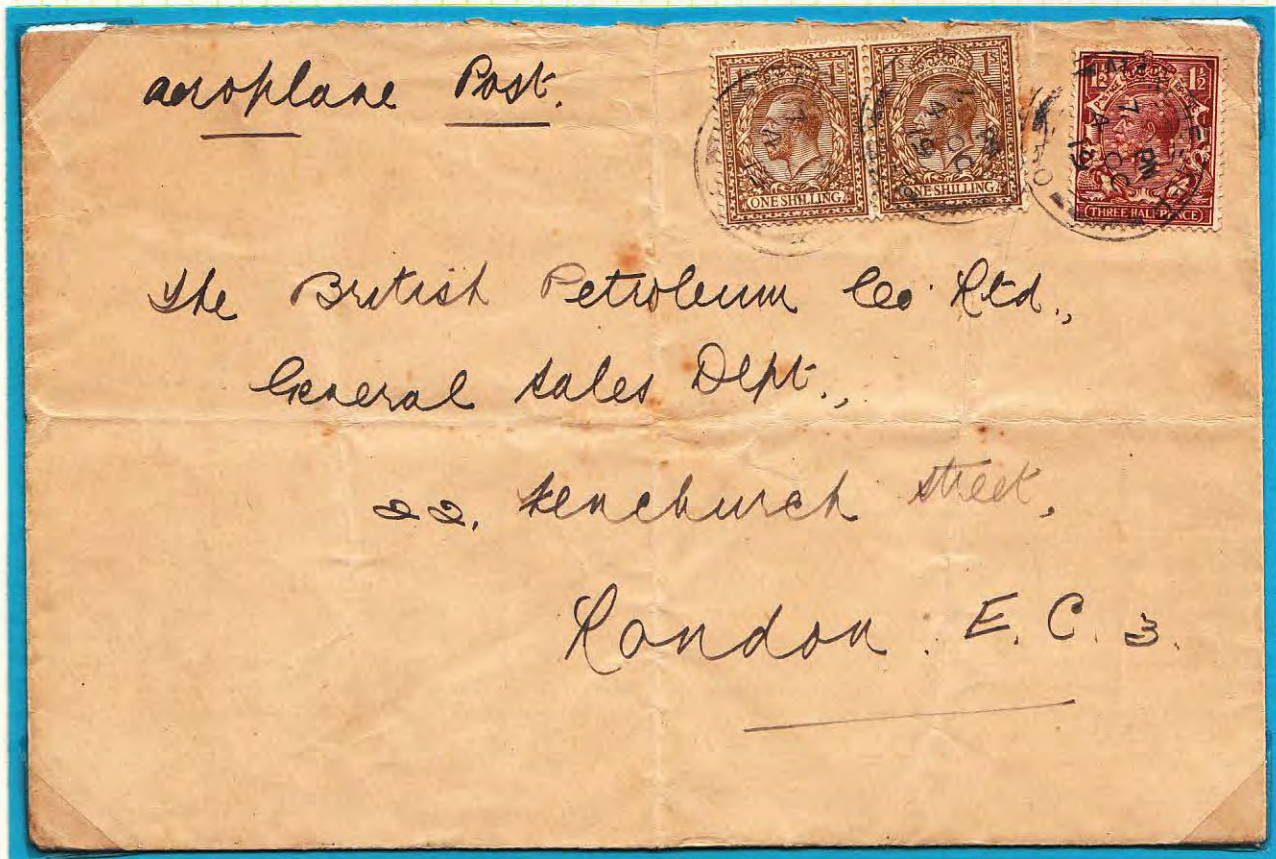 aeroplane Post.
1S 1S 1½ 1½
ONE SHILLING ONE SHILLING THREE HALFPENCE
The British Petroleum Co Ltd.,
General Sales Dept.,
22, Fenchurch Street,
London. E. C. 3.